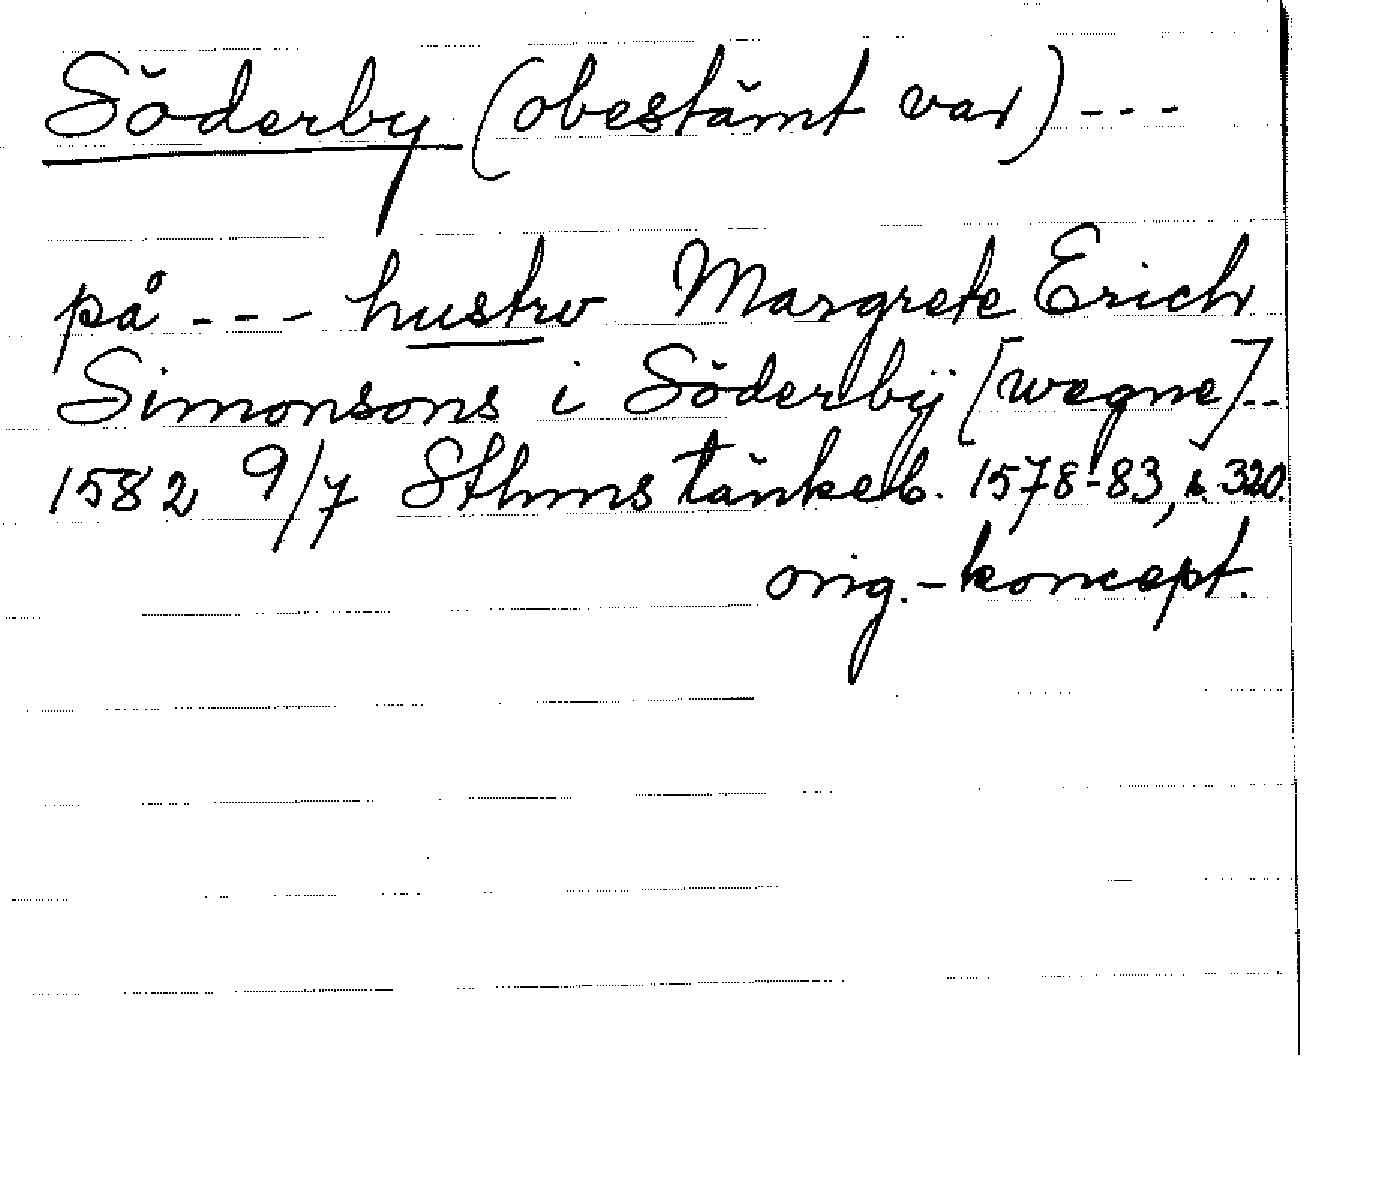 Söderby (obestämt var) ---
på --- hustrv Margrete Erich
Simonsons i Söderbÿ [wegne]--
1582 9/7 Sthms tänkeb. 1578-83, s. 320.
orig.-koncept.